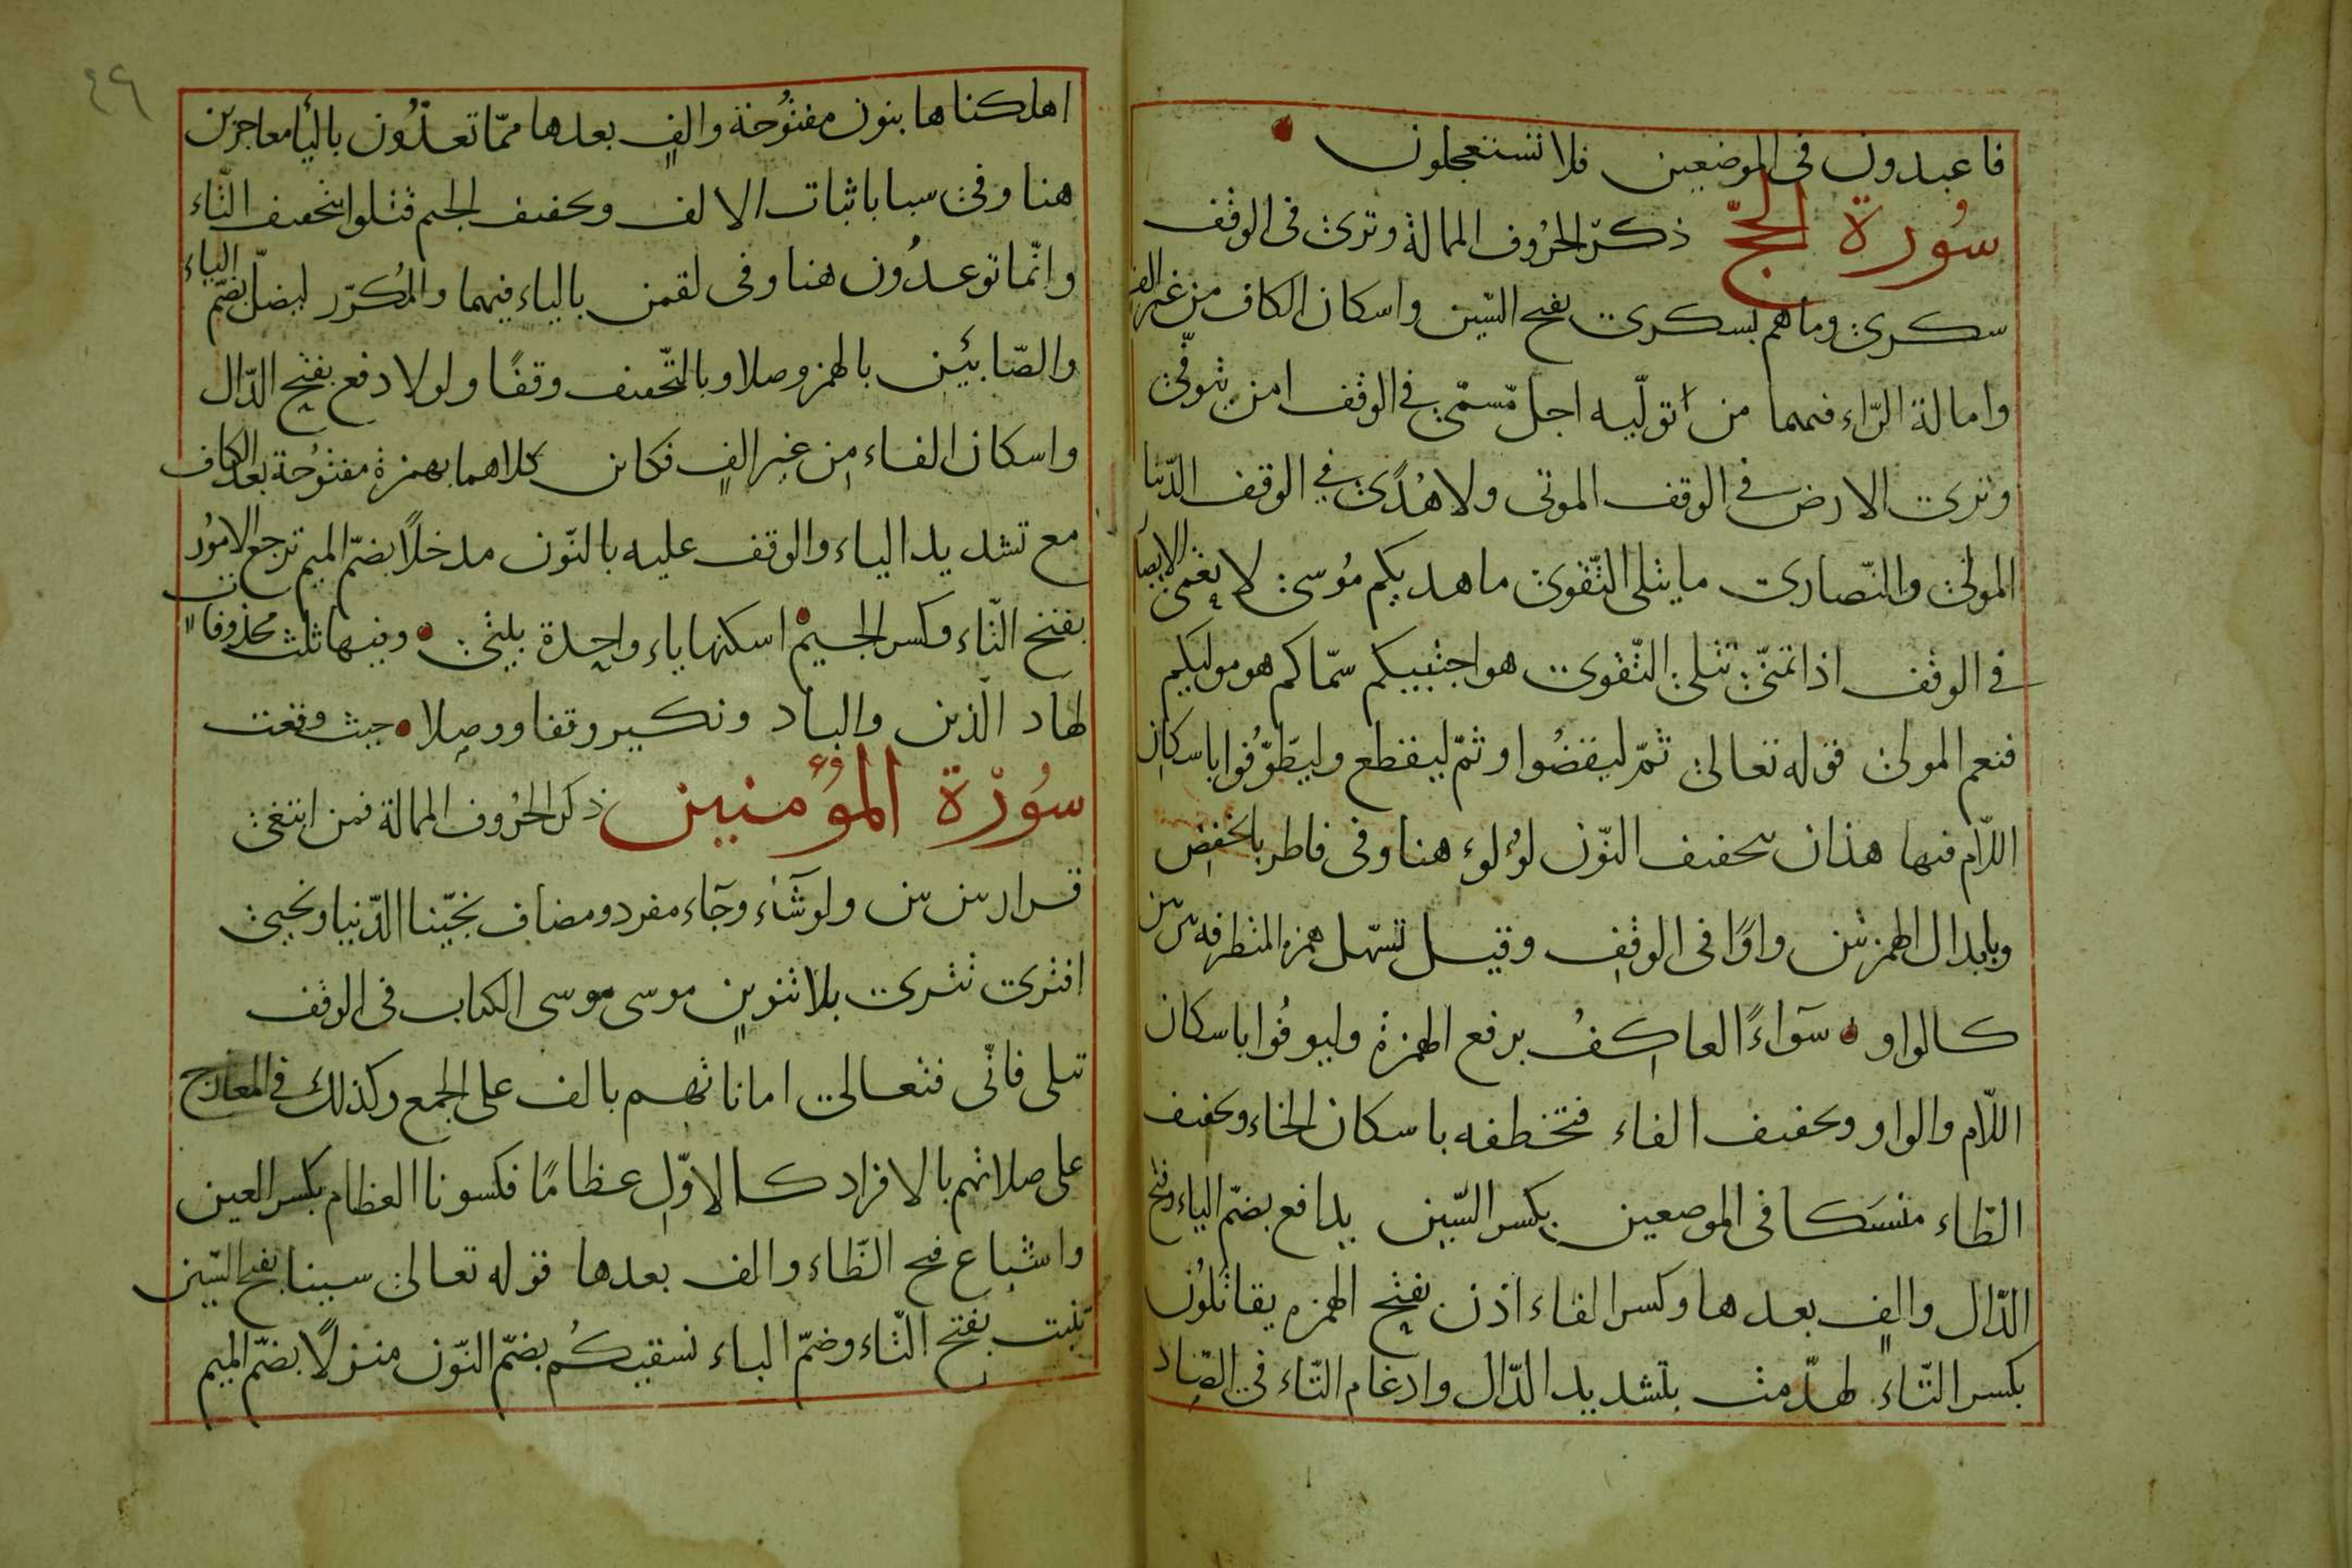 فاعبدون فى الموضعين فلا تستعجلون
سُورة الحجّ ذكر الحرُوف الممالة وترى فى الوقف
سكرى وما هم بسكرى بفتح السّين واسكان الكاف من غير الف
وامالة الرّاء فيهما من تولّيه اجل مّسمّى فى الوقف من يتوفّى
وترى الارض فى الوقف الموتى ولا هُدًى فى الوقف الدّنيا
المولى والنّصارى ما يتلى التّقوى ما هديكم مُوسى لا تعمى الابصار
فى الوقف اذا تمنّى تتلى التّقوى هو اجتبيكم سمّاكم هو موليكم
فنعم المولى قوله تعالى ثمّ ليقضُوا وثمّ ليقطع وليطّوّفُوا باسكان
اللّام فيها هذان بتخفيف النّون لؤلؤ هنا وفى فاطر بالخفض
وبابدال الهمزتين واوًا فى الوقف وقيل تسهل همزه المتطرفه بين بين
كالواو سوآءً العاكفُ برفع الهمزة وليوفُوا باسكان
اللّام والواو وتخفيف الفاء فتخطفه باسكان الخاء وتخفيف
الطّاء منسَكا فى الموضعين بكسر السّين يدافع بضمّ الياء وفتح
الدّال والفٍ بعدها وكسر الفاء اذن بفتح الهمزه يقاتلُون
بكسر التّاء لهدّمت بتشديد الدّال وادغام التّاء فى الصّاد
٤٦
اهلكناها بنون مفتُوحة والفٍ بعدها ممّا تعدُّون باليا معاجزين
هنا وفى سبا باثبات الالف وتخفيف الجيم قتلوا بتخفيف التّاء
وانّما توعدُون هنا وفى لقمن بالياء فيهما والمُكرّر ليضلّ بضمّ الياء
والصّابئين بالهمز وصلا وبالتّخفيف وقفًا ولولا دفع بفتح الدّال
واسكان الفاء من غير الفٍ فكاين كلاهما بهمزة مفتُوحة بعد الكاف
مع تشديد الياء والوقف عليه بالنّون مدخلاً بضمّ الميم ترجع الامُور
بفتح التّاء وكسر الجيم اسكنها ياء واحدة بيتى وفيها ثلث محذوفات
لهاد الّذين والباد ونكير وقفا ووصلا حيث وقعت
سُورة المؤمنين ذكر الحرُوف الممالة فمن ابتغى
قرار بين بين ولو شآء وجآء مفرد ومضاف نجّينا الدّنيا ونحيى
افترى تترى بلا تنوينٍ موسى موسى الكتاب فى الوقف
تتلى فانّى فتعالى اماناتهم بالف على الجمع وكذلك فى المعارج
على صلاتهم بالافراد كالاوّل عظامًا فكسونا العظام بكسر العين
واشباع فتح الظّاء والف بعدها قوله تعالى سينا بفتح السّين
تنبت بفتح التّاء وضمّ الباء نسقيكُم بضمّ النّون منزلًا بضمّ الميم